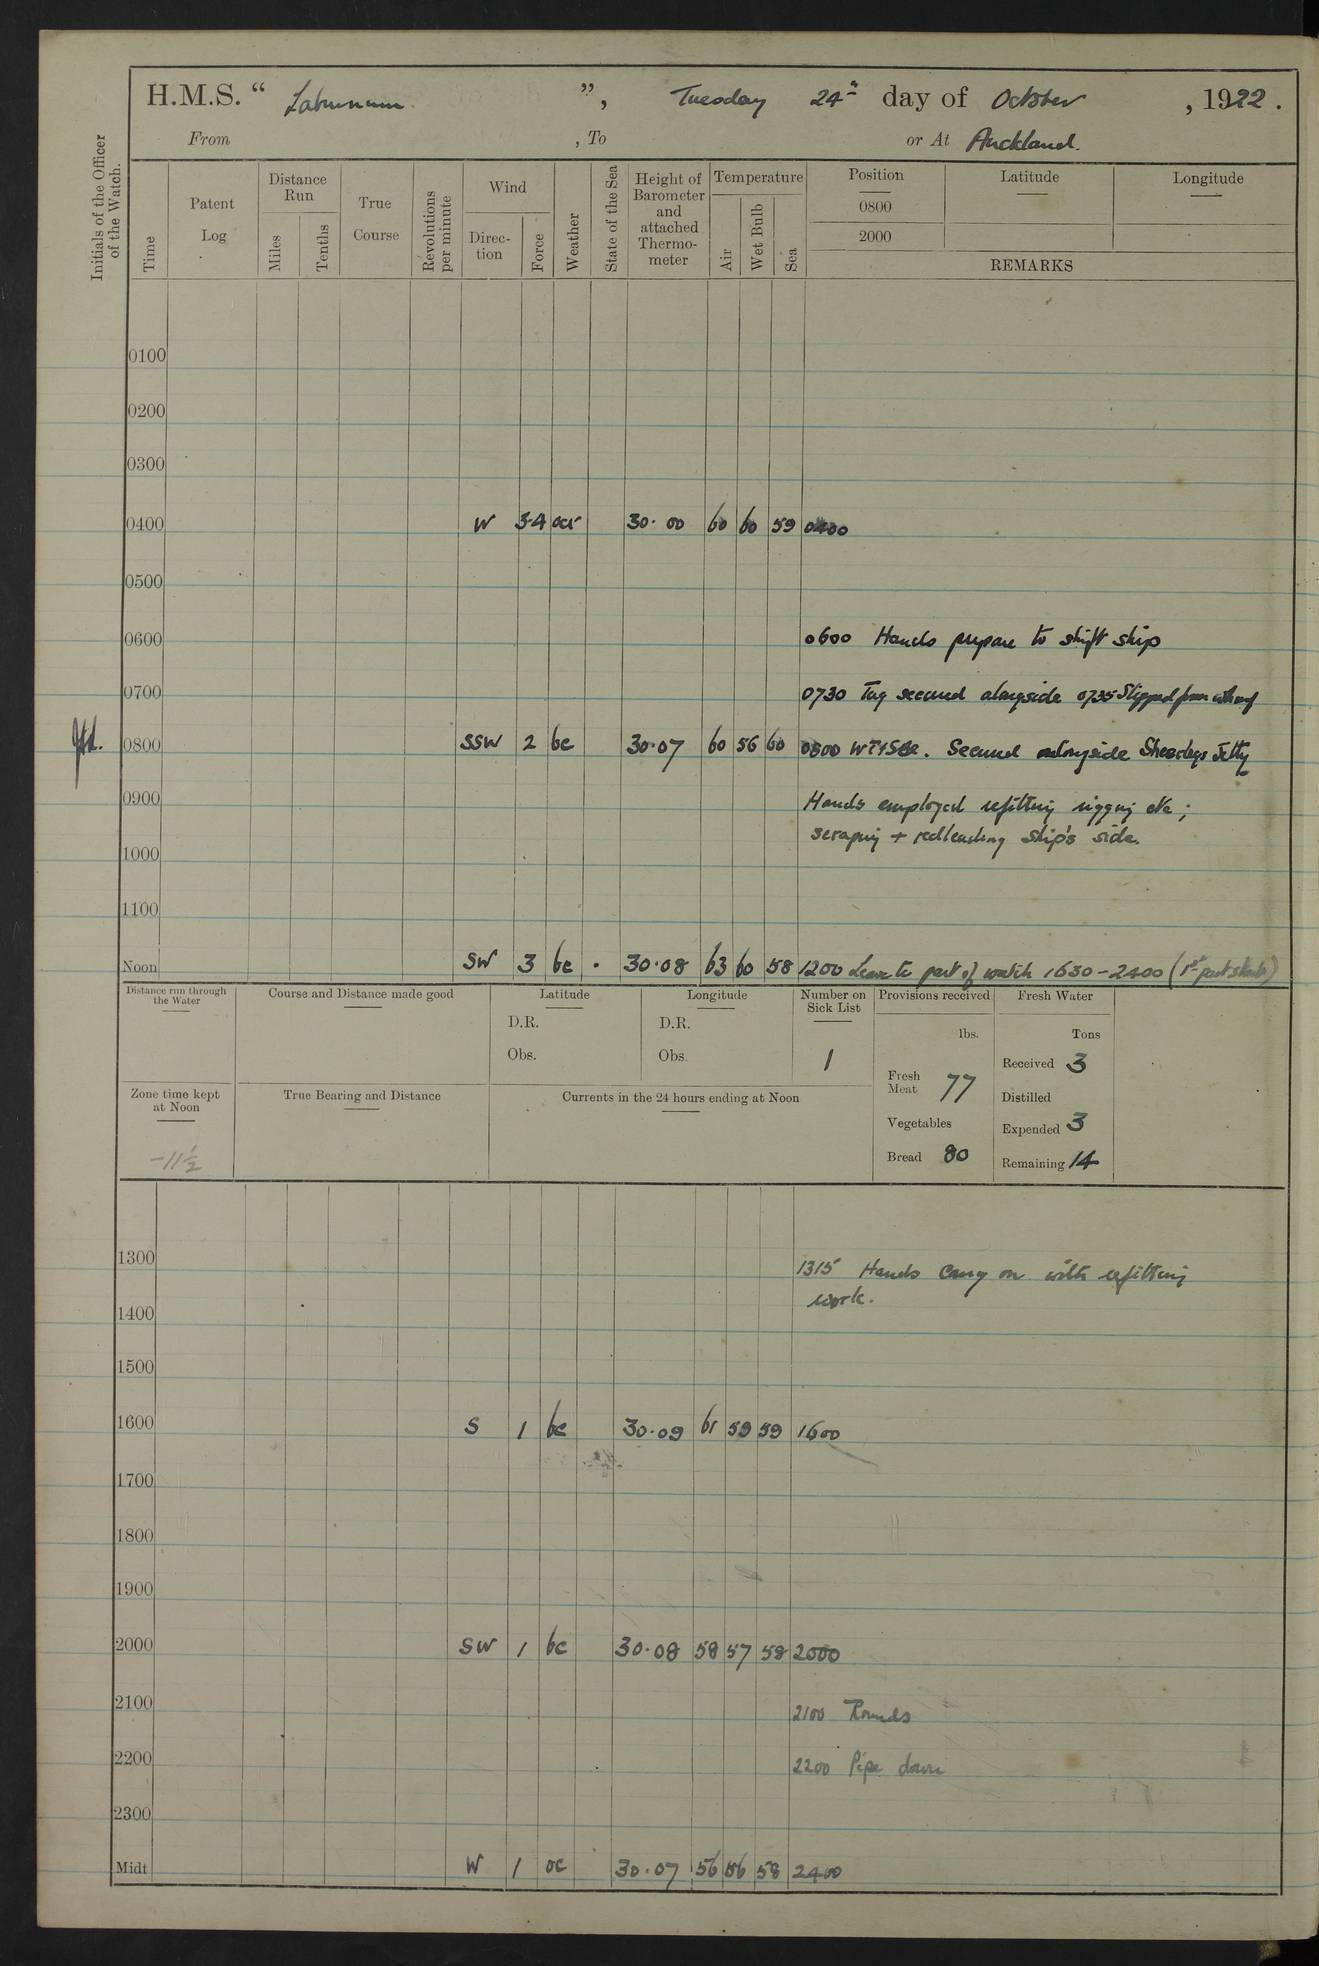 H.M.S. “ Laburnum ”, Tuesday 24th day of October , 1922 .
From , To or At Auckland.
Initials of the Officer of the Watch.
Time
Patent Log
Distance Run
Miles
Tenths
True Course
Revolutions per minute
Wind
Direc-tion
Force
Weather
State of the Sea
Height of Barometer and attached Thermo-meter
Temperature
Air
Wet Bulb
Sea
Position
0800
2000
Latitude
Longitude
REMARKS
0100
0200
0300
0400 W 3-4 ocr 30.00 60 60 59 0400
0500
0600 0600 Hands prepare to shift ship
0700 0730 Tug secured alongside 0735 Slipped from wharf
0800 SSW 2 bc 30.07 60 56 60 0800 Secured alongside Sheerlegs Jetty
0900 Hands employed refitting rigging etc ;
scraping + redleading ship's side.
1000
1100
Noon SW 3 bc . 30.08 63 60 58 1200 Leave to part of watch 1630-2400 (1st part stmb)
Distance run through the Water
Course and Distance made good
Latitude
D.R.
Obs.
Longitude
D.R.
Obs.
Number on Sick List
1
Provisions received
lbs.
Fresh Meat 77
Vegetables
Bread 80
Fresh Water
Tons
Received 3
Distilled
Expended 3
Remaining 14
Zone time kept at Noon
-11½
True Bearing and Distance
Currents in the 24 hours ending at Noon
1300 1315 Hands carry on with refitting
work.
1400
1500
1600 S 1 bc 30.09 61 59 59 1600
1700
1800
1900
2000 SW 1 bc 30.08 58 57 58 2000
2100 2100 Rounds
2200 2200 Pipe down
2300
Midt W 1 oc 30.07 56 56 58 2400